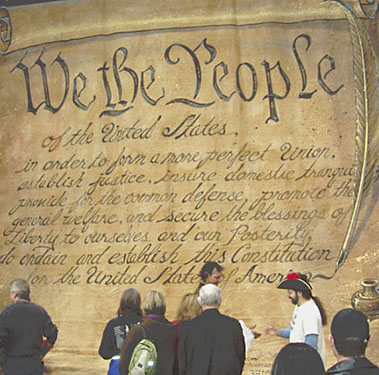 We the People
of the United States,
in order to form a more perfect Union,
establish justice, insure domestic tranqui
provide for the common defense, promote the
general welfare, and secure the blessings of
Liberty to ourselves and our Posterity
do ordain and establish this Constitution
for the United States of America